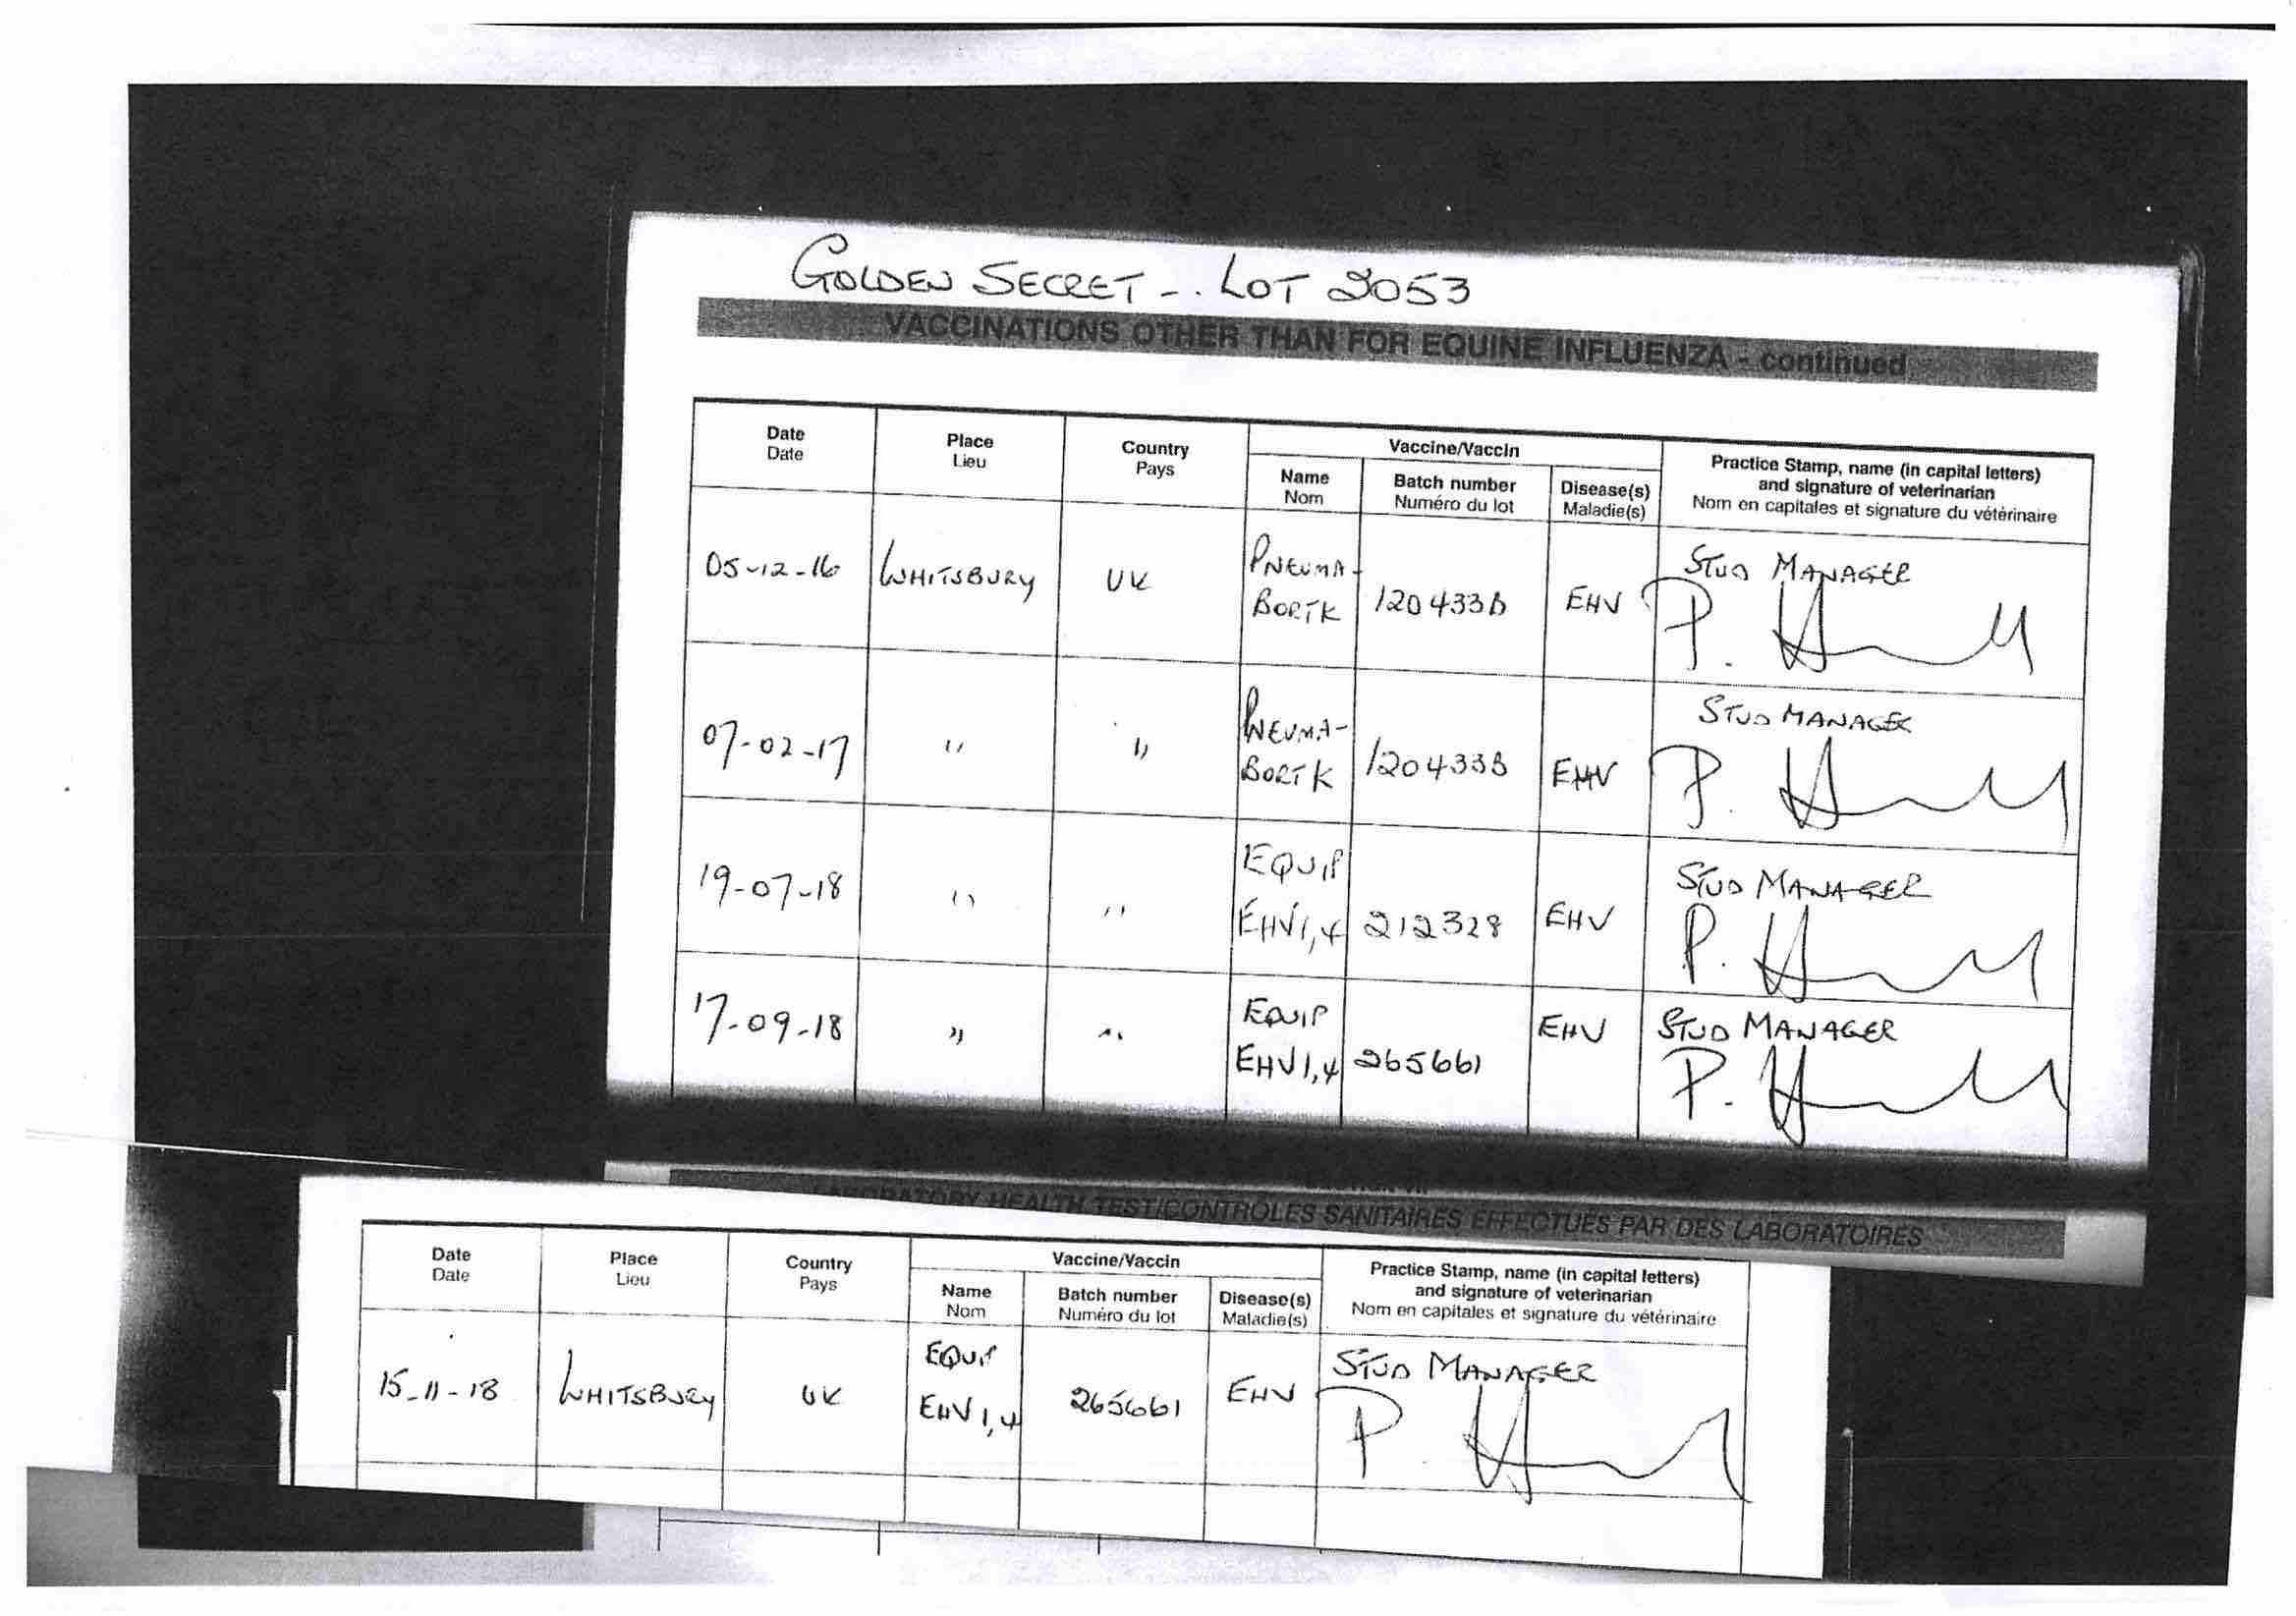 GOLDEN SECRET -. LOT 2053
VACCINATIONS OTHER THAN FOR EQUINE INFLUENZA - continued
Date Place Country Vaccine/Vaccin Practice Stamp, name (in capital letters)
Date Lieu Pays Name Batch number Disease(s) and signature of veterinarian
Nom Numéro du lot Maladie(s) Nom en capitales et signature du vétérinaire
05-12-16 WHITSBURY UK PNEUMA- 120433B EHV STUD MANAGER
BORTK P.
07-02-17 " " PNEUMA- 120433B EHV STUD MANAGER
BORTK P.
19-07-18 " " EQUIP 212328 EHV STUD MANAGER
EHV1,4 P.
17-09-18 " " EQUIP 265661 EHV STUD MANAGER
EHV1,4 P.
LABORATORY HEALTH TEST/CONTRÔLES SANITAIRES EFFECTUÉS PAR DES LABORATOIRES
Date Place Country Vaccine/Vaccin Practice Stamp, name (in capital letters)
Date Lieu Pays Name Batch number Disease(s) and signature of veterinarian
Nom Numéro du lot Maladie(s) Nom en capitales et signature du vétérinaire
15-11-18 WHITSBURY UK EQUIP 265661 EHV STUD MANAGER
EHV1,4 P